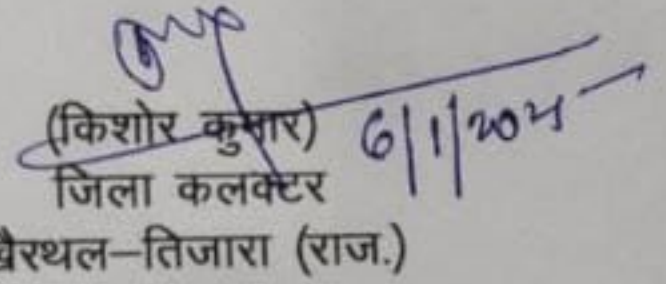 (किशोर कुमार) 6/1/2025
जिला कलक्टर
खैरथल-तिजारा (राज.)